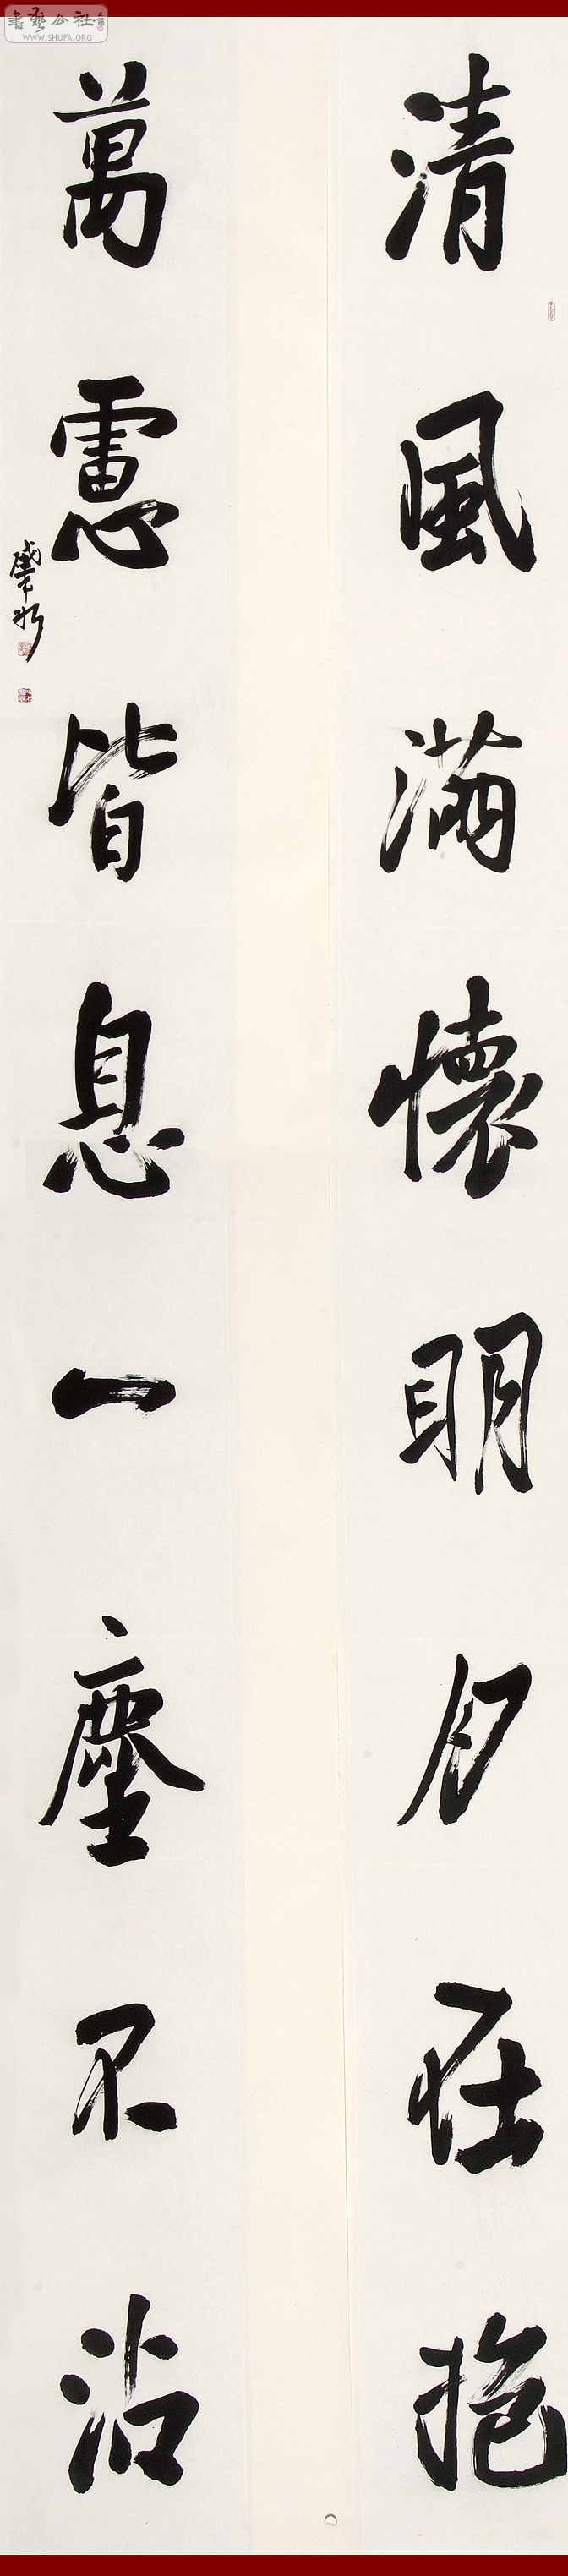 清風滿懷明月在抱
萬慮皆息一塵不沾
書藝公社
WWW.SHUFA.ORG